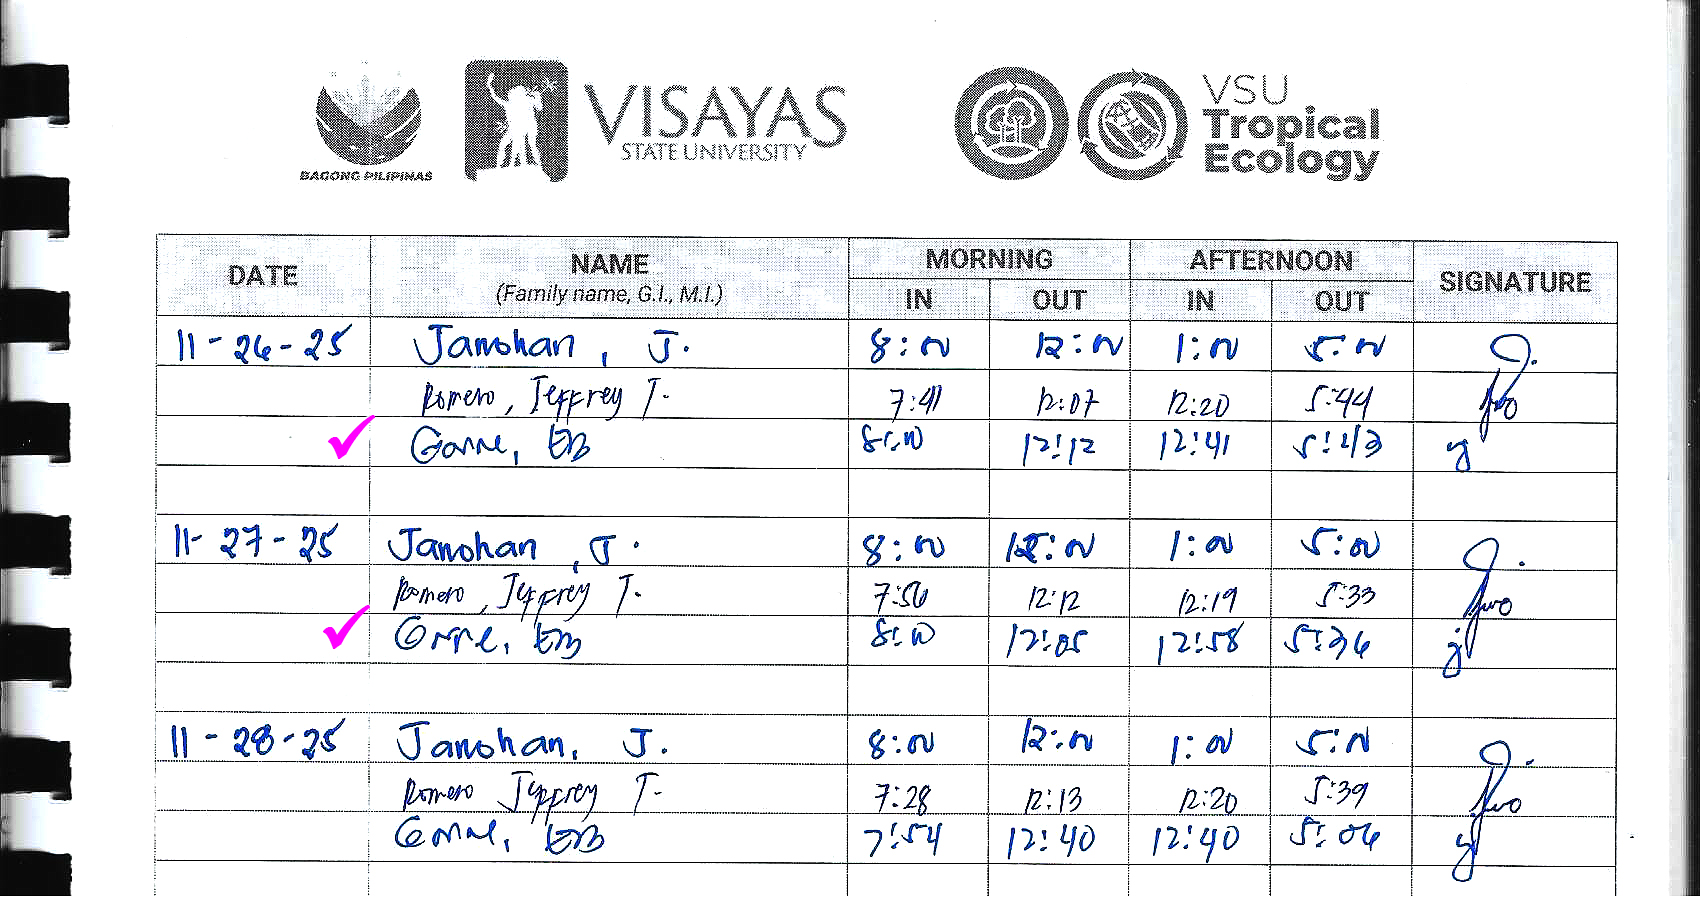 BAGONG PILIPINAS
VISAYAS
STATE UNIVERSITY
VSU
Tropical
Ecology
DATE NAME (Family name, G.I., M.I.) MORNING IN OUT AFTERNOON IN OUT SIGNATURE
11-26-25 Janohan, J. 8:00 12:00 1:00 5:00
Romero, Jeffrey T. 7:41 12:07 12:20 5:44
EB 8:00 12:12 12:41 5:43
11-27-25 Janohan, J. 8:00 12:00 1:00 5:00
Romero, Jeffrey T. 7:56 12:12 12:19 5:33
EB 8:00 12:05 12:58 5:36
11-28-25 Janohan, J. 8:00 12:00 1:00 5:00
Romero Jeffrey T. 7:28 12:13 12:20 5:39
EB 7:54 12:40 12:40 5:06